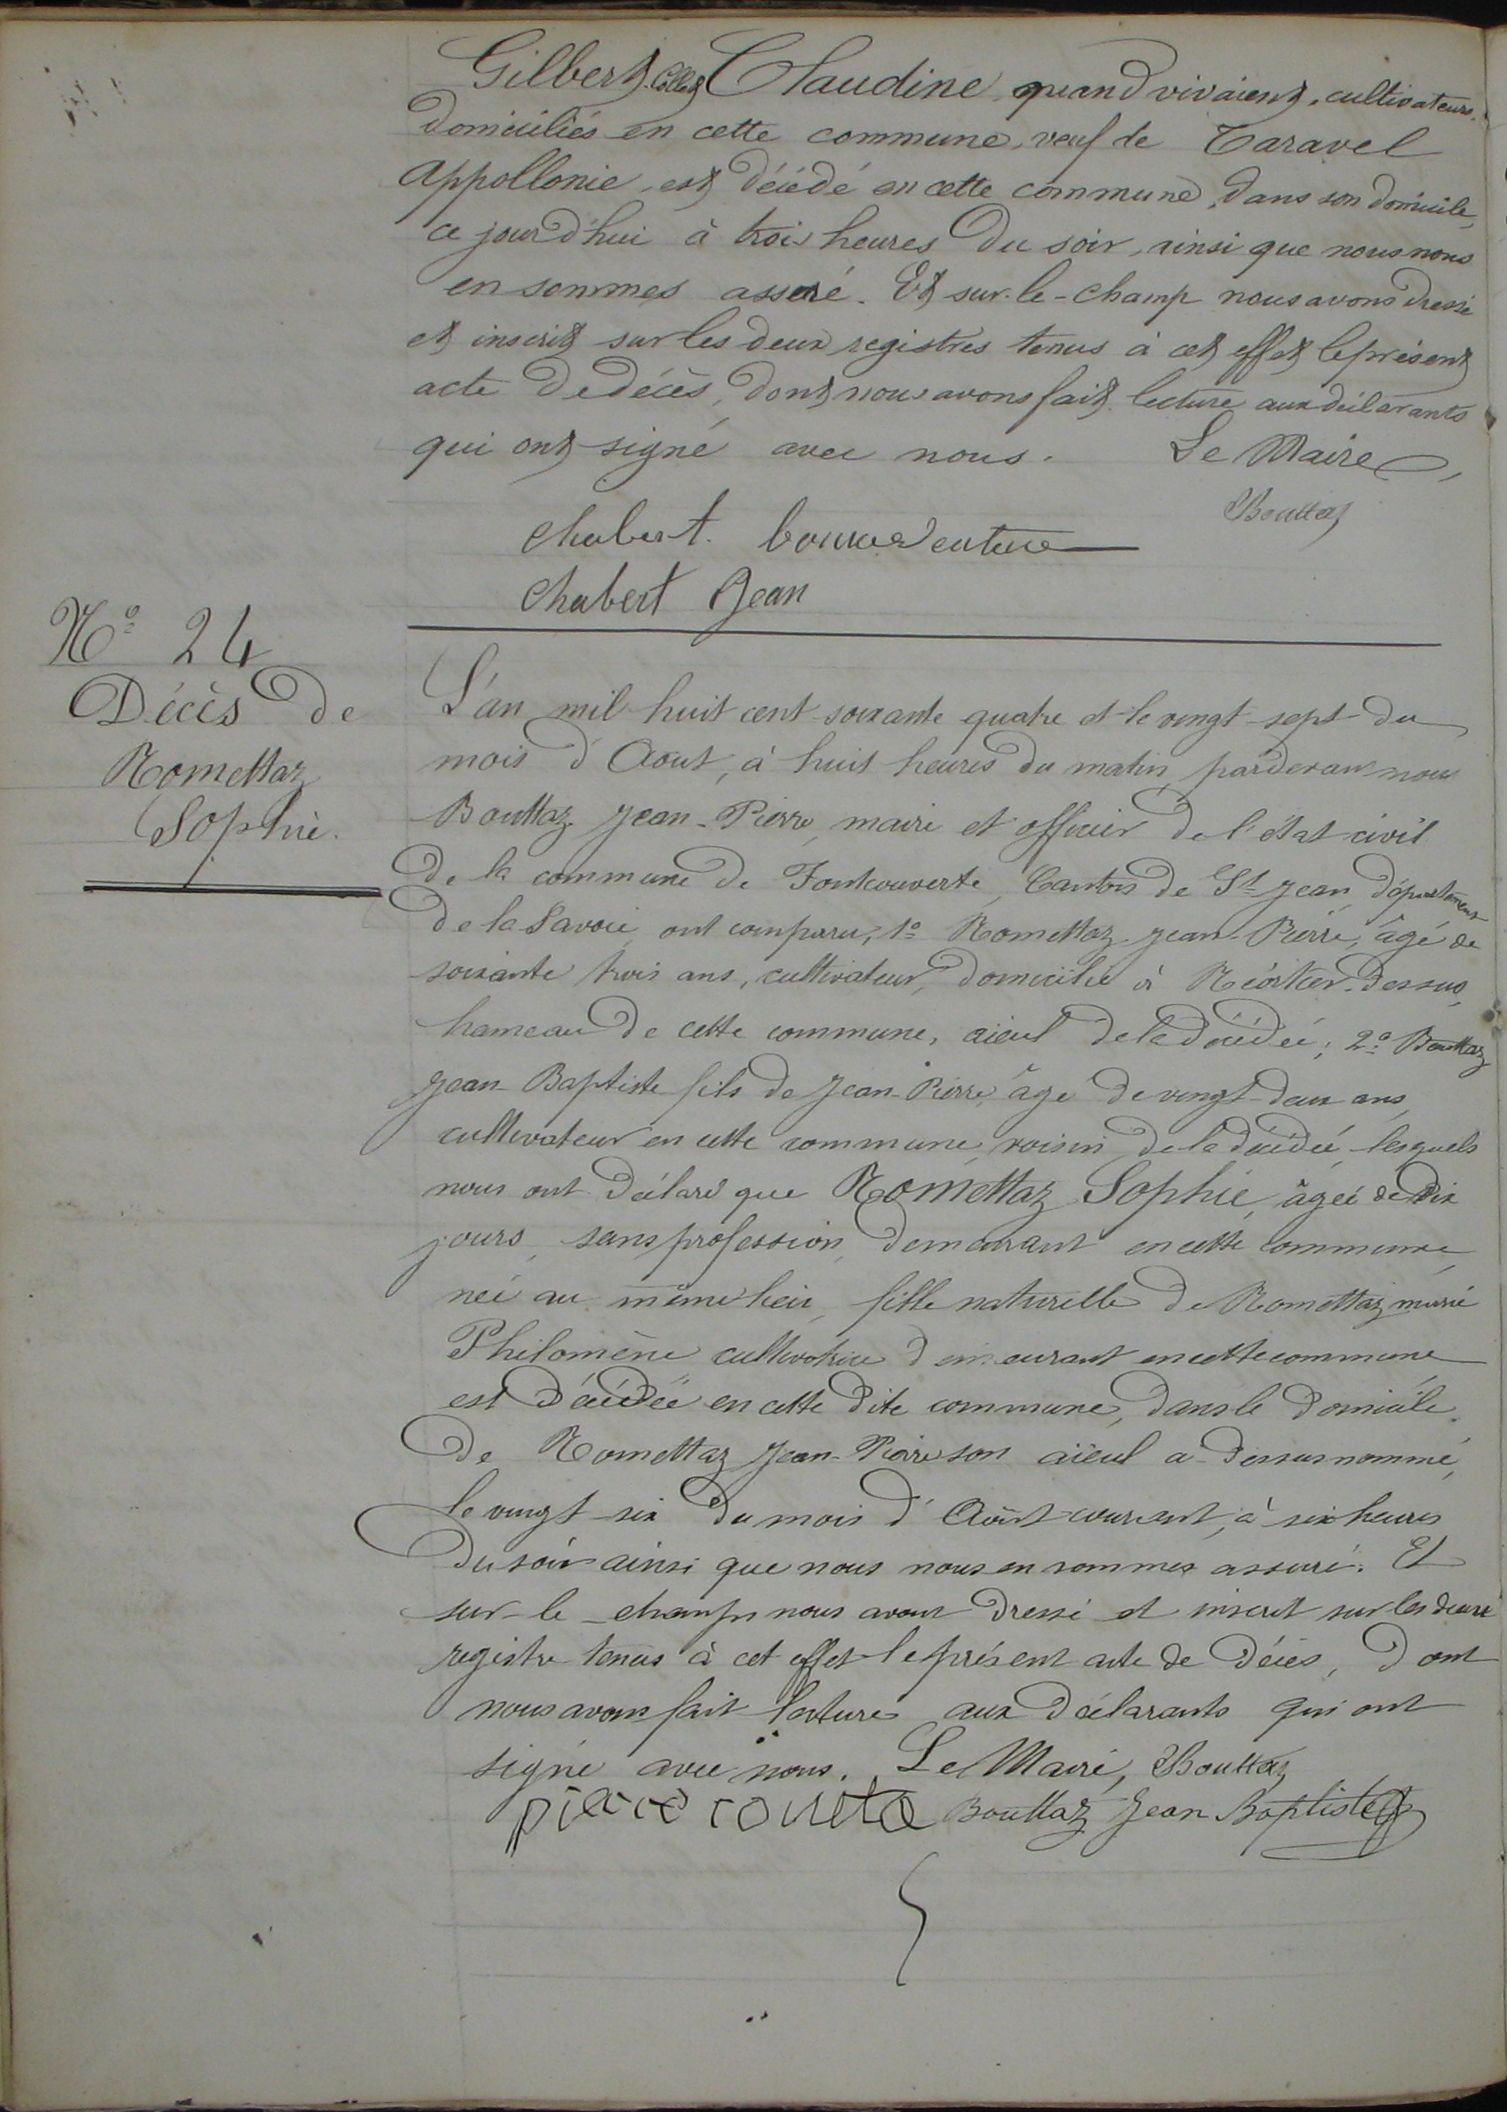 Gilbert, Collet Claudine quand vivaient, cultivateurs,
domiciliés en cette commune, veuf de Taravel
Appollonie, est décédé en cette commune, dans son domicile,
ce jourd'hui à trois heures du soir, ainsi que nous nous
en sommes assuré. Et sur-le-champ nous avons dressé
et inscrit sur les deux registres tenus à cet effet le présent
acte de décès, dont nous avons fait lecture aux déclarants
qui ont signé avec nous. Le Maire,
Bouttaz
Chabert bonnaventure
Chabert Jean
N° 24
Décès de
Romettaz
Sophie.
L'an mil huit cent soixante quatre et le vingt-sept du
mois d'Août, à huit heures du matin, pardevant nous
Bouttaz Jean-Pierre, maire et officier de l'état civil
de la commune de Fontcouverte, Canton de St Jean, département
de la Savoie, ont comparu, 1° Romettaz Jean-Pierre, âgé de
soixante trois ans, cultivateur, domicilié à dessus,
hameau de cette commune, aïeul de la décédée; 2° Bouttaz
Jean-Baptiste fils de Jean-Pierre, âgé de vingt-deux ans,
cultivateur en cette commune, voisin de la décédée, lesquels
nous ont déclaré que Romettaz Sophie, âgée de dix
jours, sans profession, demeurant en cette commune,
née au même lieu, fille naturelle de Romettaz marie
Philomène cultivatrice demeurant en cette commune
est décédée en cette dite commune, dans le domicile
de Romettaz Jean-Pierre son aïeul a-dessus nommé,
le vingt-six du mois d'Août courant, à six heures
du soir ainsi que nous nous en sommes assuré. Et
sur-le-champ nous avons dressé et inscrit sur les deux
registre tenus à cet effet le présent acte de décès, dont
nous avons fait lecture aux déclarants qui ont
signé avec nous. Le Maire, Bouttaz
Bouttaz Jean Baptiste